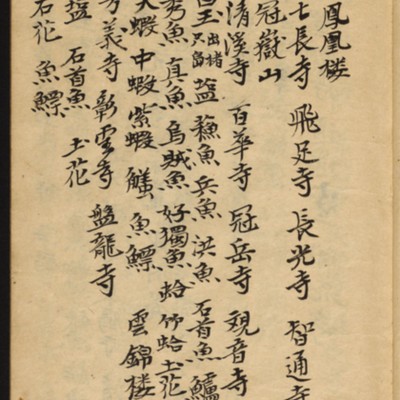 鳳凰楼
七長寺 飛足寺 長光寺 智通寺
冠嶽山
清溪寺 百華寺 冠岳寺 观音寺
玉 出楮只島 塩 魚 兵魚 洪魚 石首魚 鱸
秀魚 真魚 烏賊魚 好獨魚 蛤 竹蛤 土花
大蝦 中蝦 紫蝦 魚鰾 雲錦楼
義寺 彰雲寺 盤龍寺
塩 石首魚 土花
石花 魚鰾